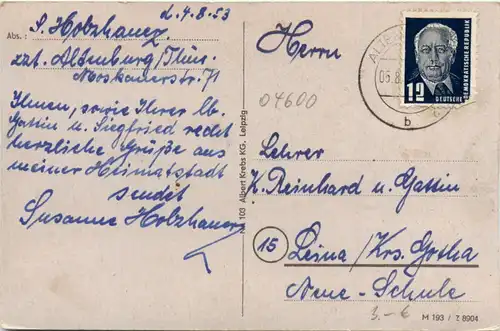 d. 4.8.53
Abs.: S. Holzhauer
zzt. Altenburg/Thür.
Moskauerstr. 71
Ihnen, sowie Ihrer lb.
Gattin u. Siegfried recht
herzliche Grüße aus
meiner Heimatstadt
sendet
Susanne Holzhauer
Nr. 103 Albert Krebs KG., Leipzig
Herrn
04600
Lehrer
K. Reinhard u. Gattin
15 Leina/Krs. Gotha
Neue-Schule
3,- €
M 193 / Z 8904
06.8.
b
12
DEUTSCHE
DEMOKRATISCHE REPUBLIK